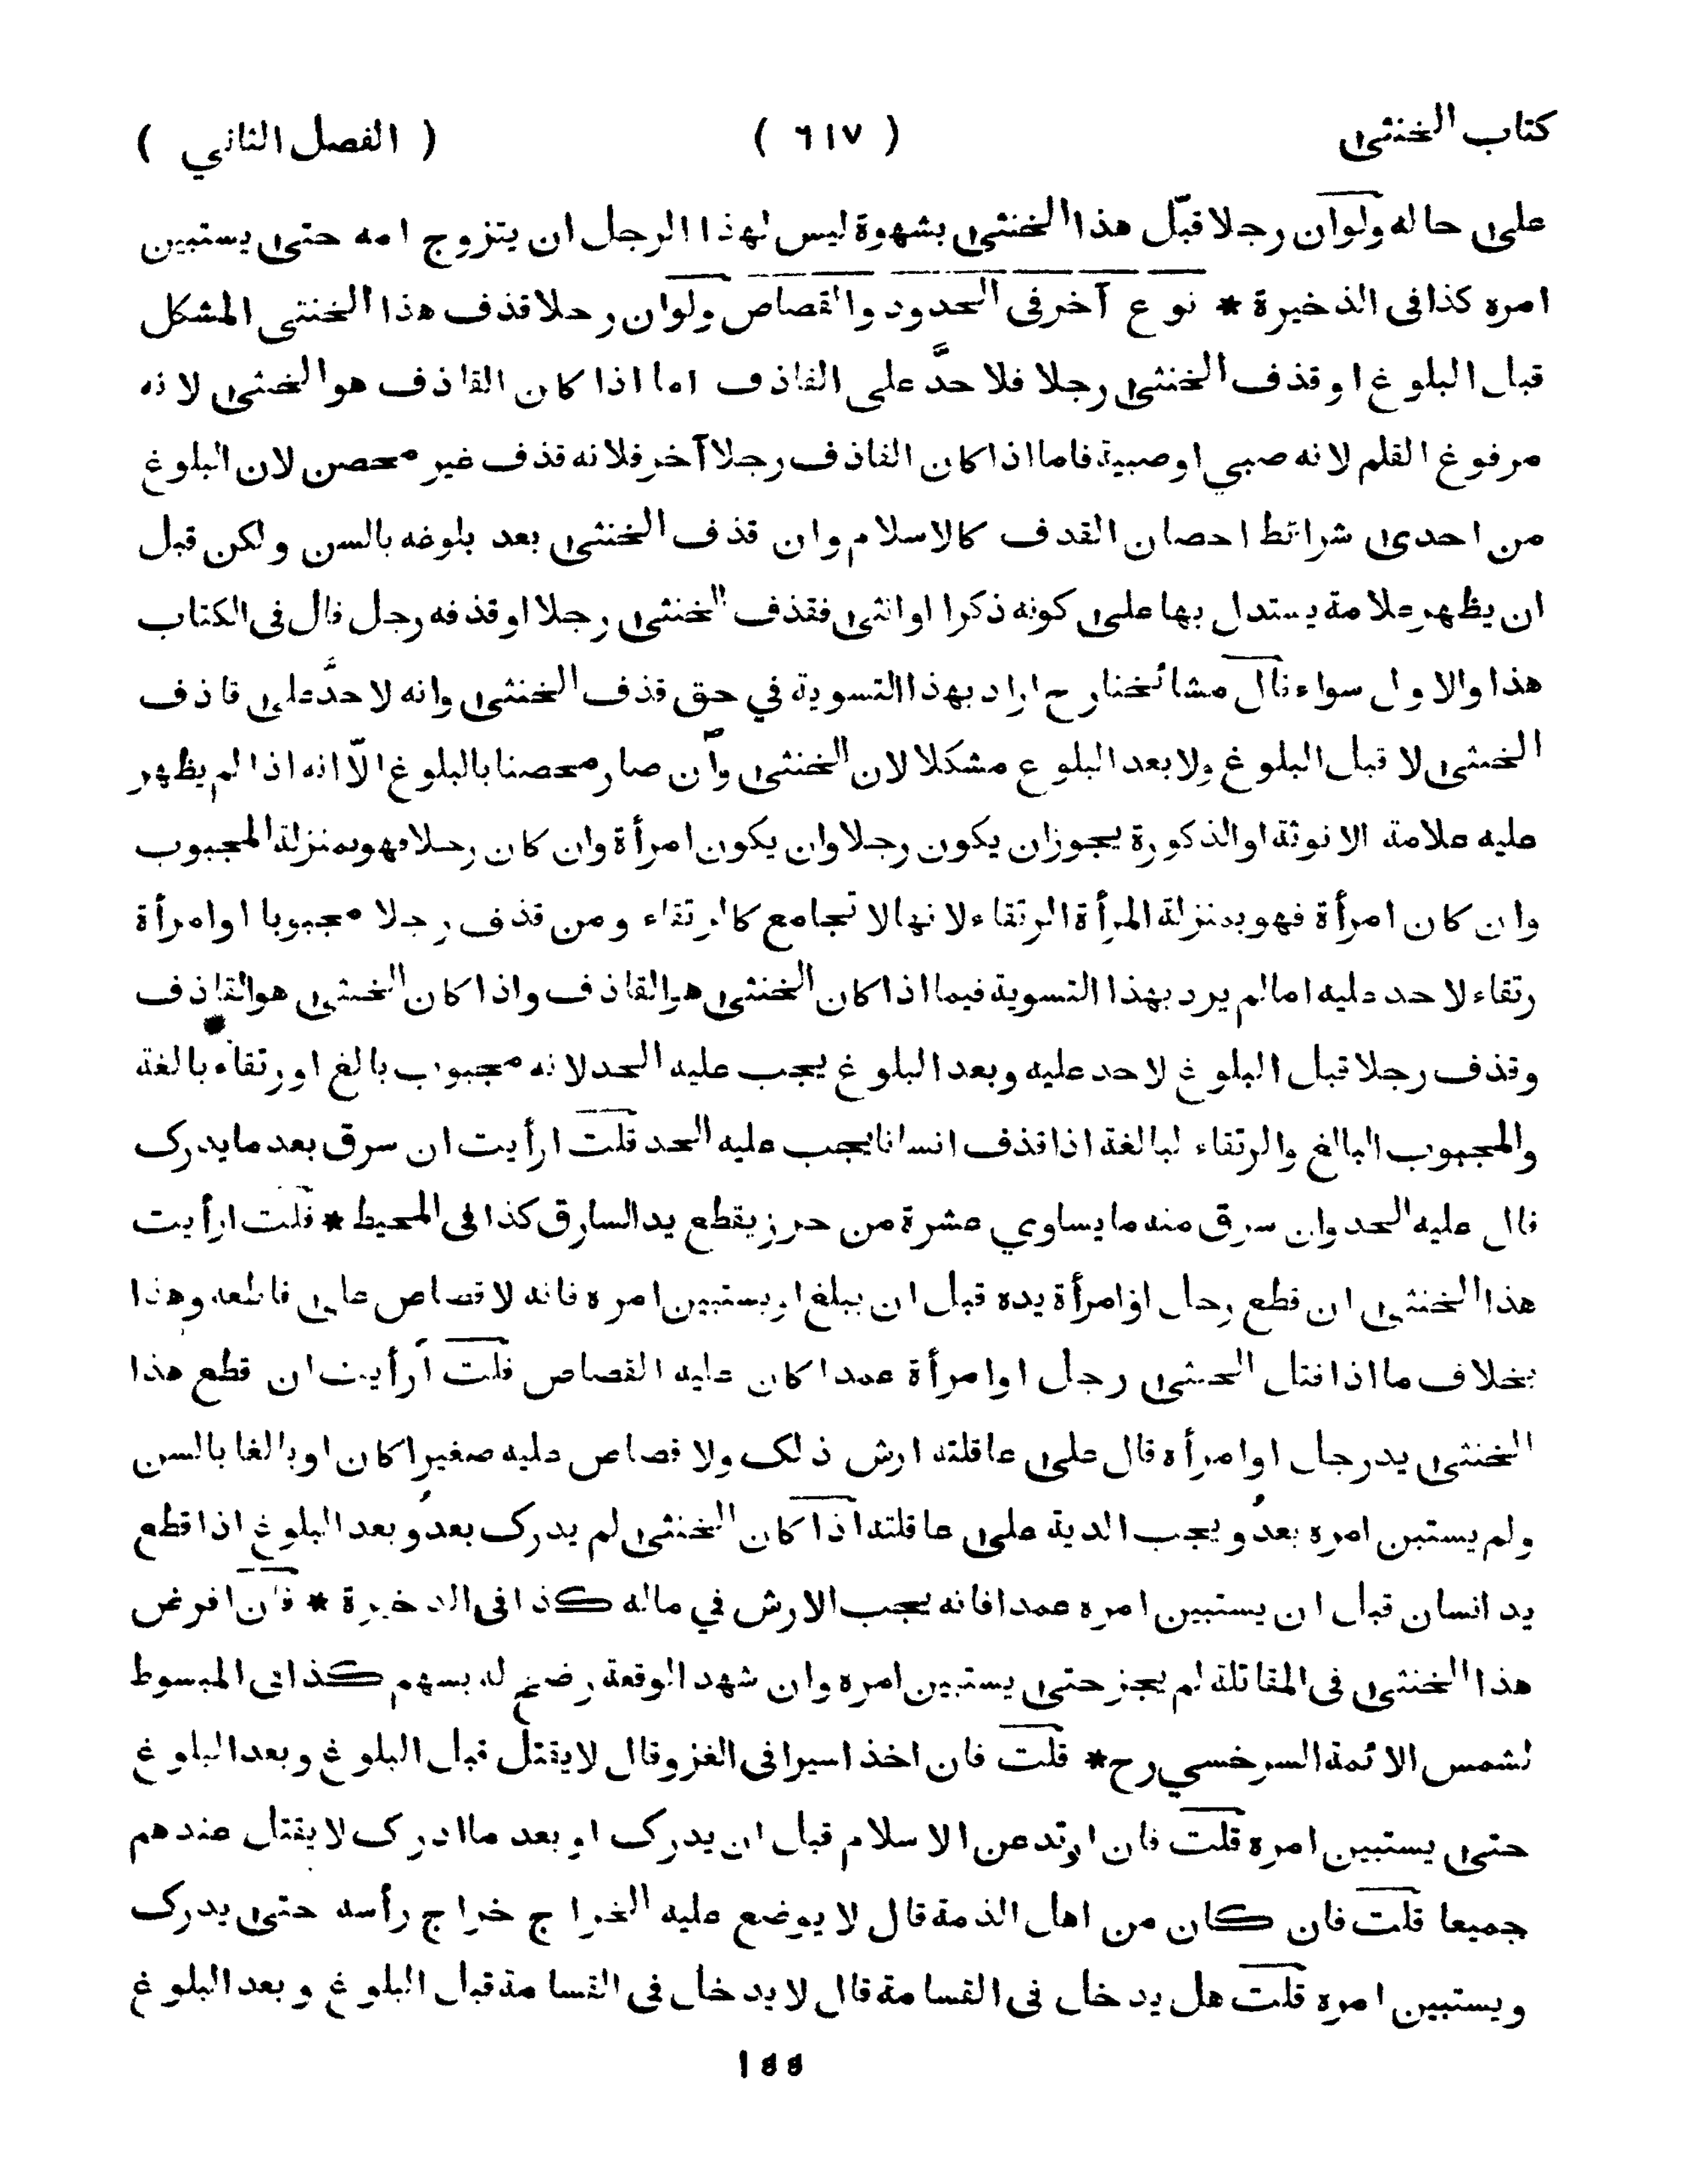 كتاب الخنثى ( ٦١٧ ) ( الفصل الثاني )
على حاله ولوان رجلا قبّل هذا الخنثى بشهوة ليس لهذا الرجل ان يتزوج امه حتى يستبين
امره كذا فى الذخيرة * نوع آخر فى الحدود والقصاص ولوان رجلا قذف هذا الخنثى المشكل
قبل البلوغ او قذف الخنثى رجلا فلا حدَّ على القاذف اما اذا كان القاذف هو الخنثى لانه
مرفوع القلم لانه صبي او صبية فاما اذا كان القاذف رجلا آخر فلانه قذف غير محصن لان البلوغ
من احدى شرائط احصان القذف كالاسلام وان قذف الخنثى بعد بلوغه بالسن ولكن قبل
ان يظهر علامة يستدل بها على كونه ذكرا او انثى فقذف الخنثى رجلا او قذفه رجل قال فى الكتاب
هذا والاول سواء قال مشائخنا رح اراد بهذا التسوية في حق قذف الخنثى وانه لا حدَّ على قاذف
الخنثى لا قبل البلوغ ولا بعد البلوغ مشكلا لان الخنثى وان صار محصنا بالبلوغ الّا انه اذا لم يظهر
عليه علامة الانوثة او الذكورة يجوز ان يكون رجلا وان يكون امرأة وان كان رجلا فهو بمنزلة المجبوب
وان كان امرأة فهو بمنزلة المرأة الرتقاء لانها لا تجامع كالرتقاء ومن قذف رجلا مجبوبا او امرأة
رتقاء لا حد عليه اما لم يرد بهذا التسوية فيما اذا كان الخنثى هو القاذف واذا كان الخنثى هو القاذف
وقذف رجلا قبل البلوغ لا حد عليه وبعد البلوغ يجب عليه الحد لانه مجبوب بالغ او رتقاء بالغة
والمجبوب البالغ والرتقاء لبالغة اذا قذف انسانا يجب عليه الحد قلت ارأيت ان سرق بعد ما يدرك
قال عليه الحد وان سرق منه ما يساوي عشرة من حرز يقطع يد السارق كذا فى المحيط * قلت ارأيت
هذا الخنثى ان قطع رجل او امرأة يده قبل ان يبلغ او يستبين امره فانه لا قصاص على قاطعه وهذا
بخلاف ما اذا قتل الخنثى رجل او امرأة عمدا كان عليه القصاص قلت أرأيت ان قطع هذا
الخنثى يد رجل او امرأه قال على عاقلته ارش ذلك ولا قصاص عليه صغيرا كان او بالغا بالسن
ولم يستبن امره بعدُ ويجب الدية على عاقلته اذا كان الخنثى لم يدرك بعدُ وبعد البلوغ اذا قطع
يد انسان قبل ان يستبين امره عمدا فانه يجب الارش في ماله كذا فى الذخيرة * فان افرض
هذا الخنثى فى المقاتلة لم يجز حتى يستبين امره وان شهد الوقعة رضخ له بسهم كذا فى المبسوط
لشمس الائمة السرخسي رح * قلت فان اخذ اسيرا فى الغزو قال لا يقتل قبل البلوغ وبعد البلوغ
حتى يستبين امره قلت فان ارتد عن الاسلام قبل ان يدرك او بعد ما ادرك لا يقتل عندهم
جميعا قلت فان كان من اهل الذمة قال لا يوضع عليه الخراج خراج رأسه حتى يدرك
ويستبين امره قلت هل يدخل فى القسامة قال لا يدخل فى القسامة قبل البلوغ وبعد البلوغ